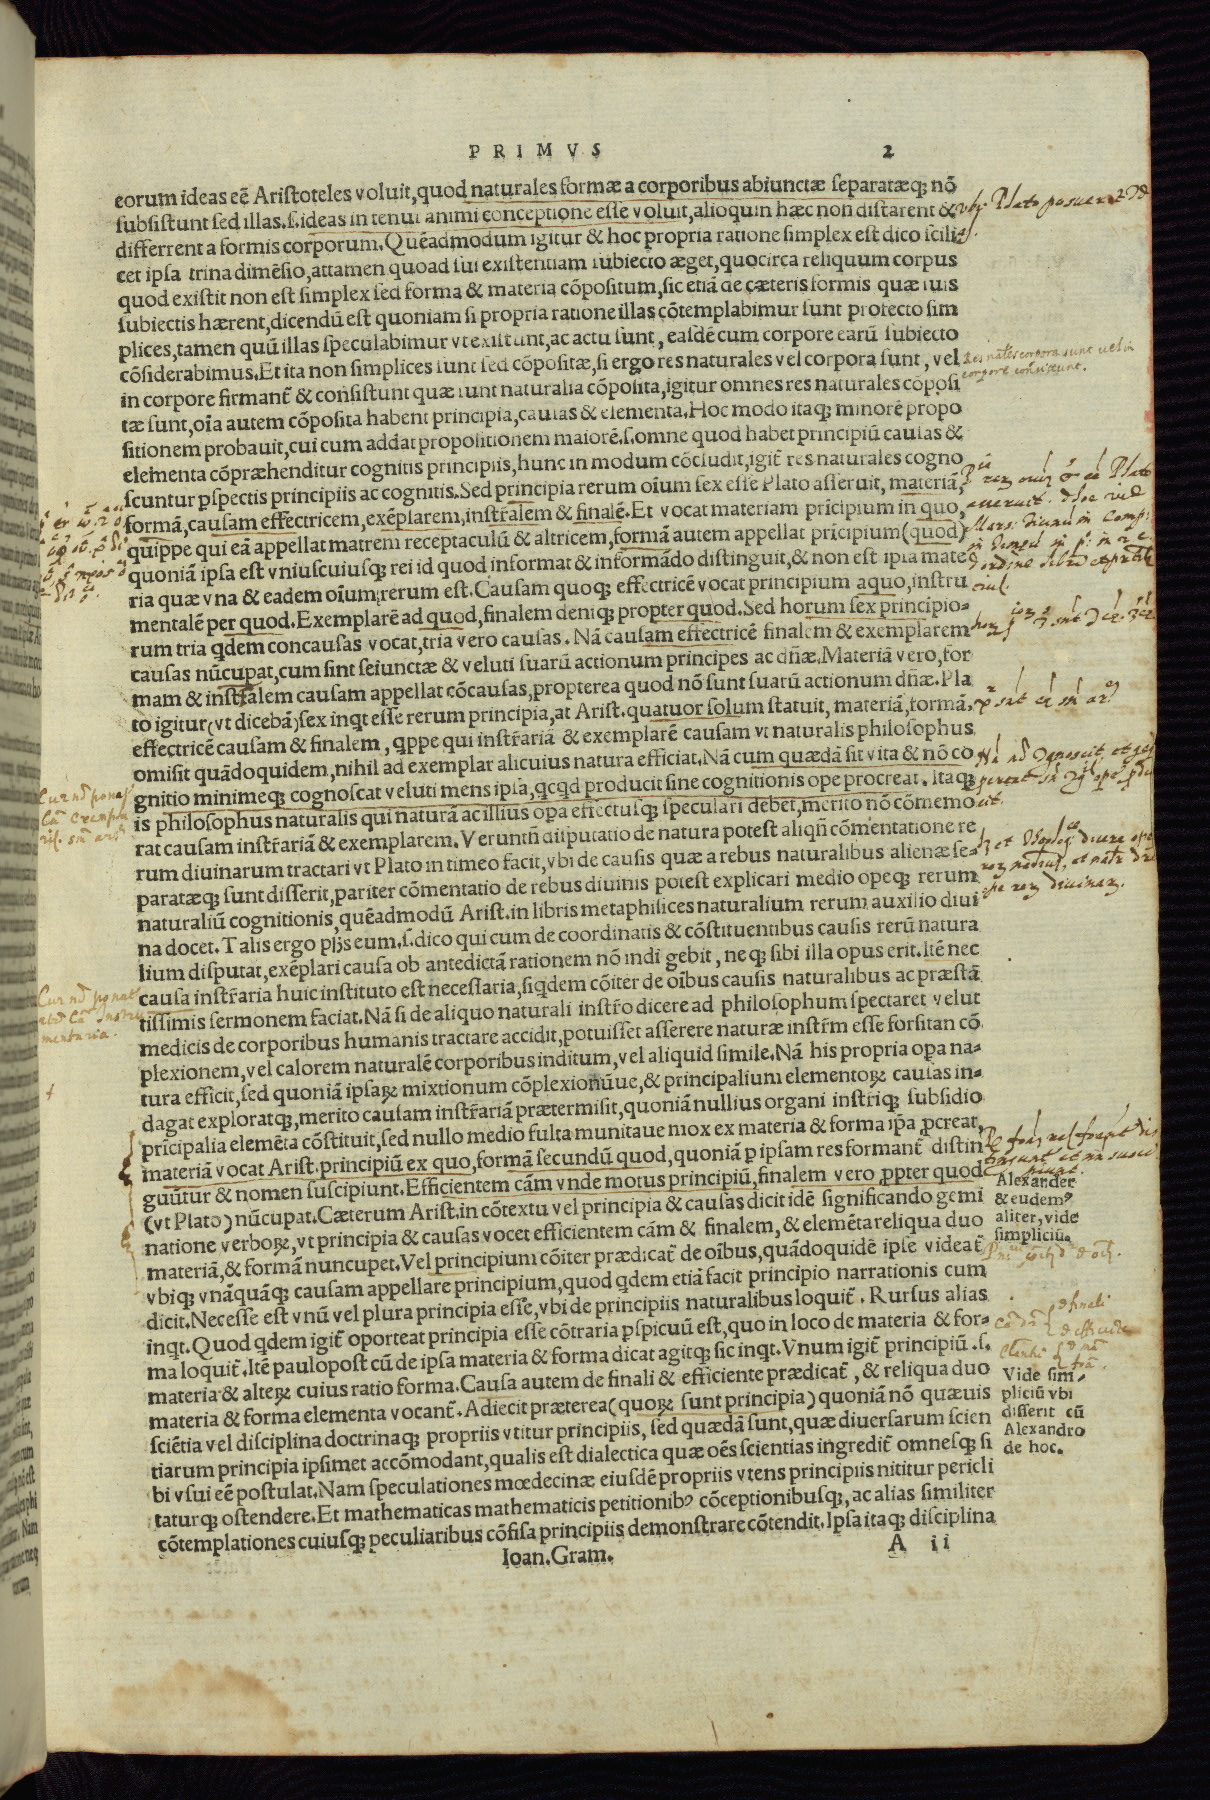 PRIMVS 2
eorum ideas eē Aristoteles voluit, quod naturales formæ a corporibus abiunctæ separatæq; nō
subsistunt sed illas .s. ideas in tenui animi conceptione esse voluit, alioquin hæc non distarent &
differrent a formis corporum. Quēadmodum igitur & hoc propria ratione simplex est dico scili
cet ipsa trina dimēsio, attamen quoad sui existentiam subiecto æget, quocirca reliquum corpus
quod existit non est simplex sed forma & materia cōpositum, sic etiā de cæteris formis quæ suis
subiectis hærent, dicendū est quoniam si propria ratione illas cōtemplabimur sunt profecto sim
plices, tamen quū illas speculabimur vt existunt, ac actu sunt, easdē cum corpore earū subiecto
cōsiderabimus. Et ita non simplices sunt sed cōpositæ, si ergo res naturales vel corpora sunt, vel
in corpore firmant̄ & consistunt quæ sunt naturalia cōposita, igitur omnes res naturales cōposi
tæ sunt, oīa autem cōposita habent principia, causas & elementa. Hoc modo itaq; minorē propo
sitionem probauit, cui cum addat propositionem maiorē .s. omne quod habet principiū causas &
elementa cōpræhenditur cognitis principiis, hunc in modum cōcludit, igit̄ res naturales cogno
scuntur pspectis principiis ac cognitis. Sed principia rerum oīum sex esse Plato asseruit, materiā,
formā, causam effectricem, exēplarem, instr̄alem & finalē. Et vocat materiam prīcipium in quo,
quippe qui eā appellat matrem receptaculū & altricem, formā autem appellat prīcipium (quod)
quoniā ipsa est vniuscuiusq; rei id quod informat & informādo distinguit, & non est ipsa mate
ria quæ vna & eadem oīum rerum est. Causam quoq; effectricē vocat principium aquo, instru
mentalē per quod. Exemplarē ad quod, finalem deniq; propter quod. Sed horum sex principio-
rum tria qdem concausas vocat, tria vero causas. Nā causam effectricē finalem & exemplarem
causas nūcupat, cum sint seiunctæ & veluti suarū actionum principes ac dn̄æ. Materiā vero, for
mam & instr̄alem causam appellat cōcausas, propterea quod nō sunt suarū actionum dn̄æ. Pla
to igitur (vt dicebā) sex inqt esse rerum principia, at Arist. quatuor solum statuit, materiā, formā,
effectricē causam & finalem, qppe qui instr̄ariā & exemplarē causam vt naturalis philosophus
omisit quādoquidem, nihil ad exemplar alicuius natura efficiat. Nā cum quædā sit vita & nō co
gnitio minimeq; cognoscat veluti mens ipsa, qcqd producit sine cognitionis ope procreat. Itaq;
is philosophus naturalis qui naturā ac illius opa effectusq; speculari debet, merito nō cōmemo
rat causam instr̄ariā & exemplarem. Veruntn̄ disputatio de natura potest aliqn̄ cōmentatione re
rum diuinarum tractari vt Plato in timeo facit, vbi de causis quæ a rebus naturalibus alienæ se-
paratæq; sunt disserit, pariter cōmentatio de rebus diuinis potest explicari medio opeq; rerum
naturaliū cognitionis, quēadmodū Arist. in libris metaphisices naturalium rerum auxilio diui
na docet. Talis ergo phs̄ eum .s. dico qui cum de coordinatis & cōstituentibus causis rerū natura
lium disputat, exēplari causa ob antedictā rationem nō indigebit, neq; sibi illa opus erit. Itē nec
causa instr̄aria huic instituto est necessaria, siqdem cōiter de oībus causis naturalibus ac præstā
tissimis sermonem faciat. Nā si de aliquo naturali instr̄o dicere ad philosophum spectaret velut
medicis de corporibus humanis tractare accidit, potuisset asserere naturæ instr̄m esse forsitan cō
plexionem, vel calorem naturalē corporibus inditum, vel aliquid simile. Nā his propria opa na-
tura efficit, sed quoniā ipsaꝝ mixtionum cōplexionūue, & principalium elementoꝝ causas in-
dagat exploratq;, merito causam instr̄ariā prætermisit, quoniā nullius organi instr̄iq; subsidio
prīcipalia elemēta cōstituit, sed nullo medio fulta munitaue mox ex materia & forma ip̄a ꝓcreat,
materiā vocat Arist. principiū ex quo, formā secundū quod, quoniā p ipsam res formant̄ distin
guūtur & nomen suscipiunt. Efficientem cām vnde motus principiū, finalem vero ꝓpter quod
(vt Plato) nūcupat. Cæterum Arist. in cōtextu vel principia & causas dicit idē significando gemi
natione verboꝝ, vt principia & causas vocet efficientem cām & finalem, & elemēta reliqua duo
materiā, & formā nuncupet. Vel principium cōiter prædicat̄ de oībus, quādoquidē ipse videat̄
vbiq; vnāquāq; causam appellare principium, quod qdem etiā facit principio narrationis cum
dicit. Necesse est vnū vel plura principia esse, vbi de principiis naturalibus loquit̄. Rursus alias
inqt. Quod qdem igit̄ oporteat principia esse cōtraria pspicuū est, quo in loco de materia & for-
ma loquit̄. Itē paulopost cū de ipsa materia & forma dicat agitq; sic inqt. Vnum igit̄ principiū .s.
materia & alteꝝ cuius ratio forma. Causa autem de finali & efficiente prædicat̄, & reliqua duo
materia & forma elementa vocant̄. Adiecit præterea (quoꝝ sunt principia) quoniā nō quæuis
sciētia vel disciplina doctrinaq; propriis vtitur principiis, sed quædā sunt, quæ diuersarum scien
tiarum principia ipsimet accōmodant, qualis est dialectica quæ oēs scientias ingredit̄ omnesq; si
bi vsui eē postulat. Nam speculationes mœdecinæ eiusdē propriis vtens principiis nititur pericli
taturq; ostendere. Et mathematicas mathematicis petitionibꝰ cōceptionibusq;, ac alias similiter
cōtemplationes cuiusq; peculiaribus cōfisa principiis demonstrare cōtendit. Ipsa itaq; disciplina
Ioan. Gram. A ii
Alexander
& eudemꝰ
aliter, vide
simpliciū.
Vide sim-
pliciū vbi
disserit cū
Alexandro
de hoc.